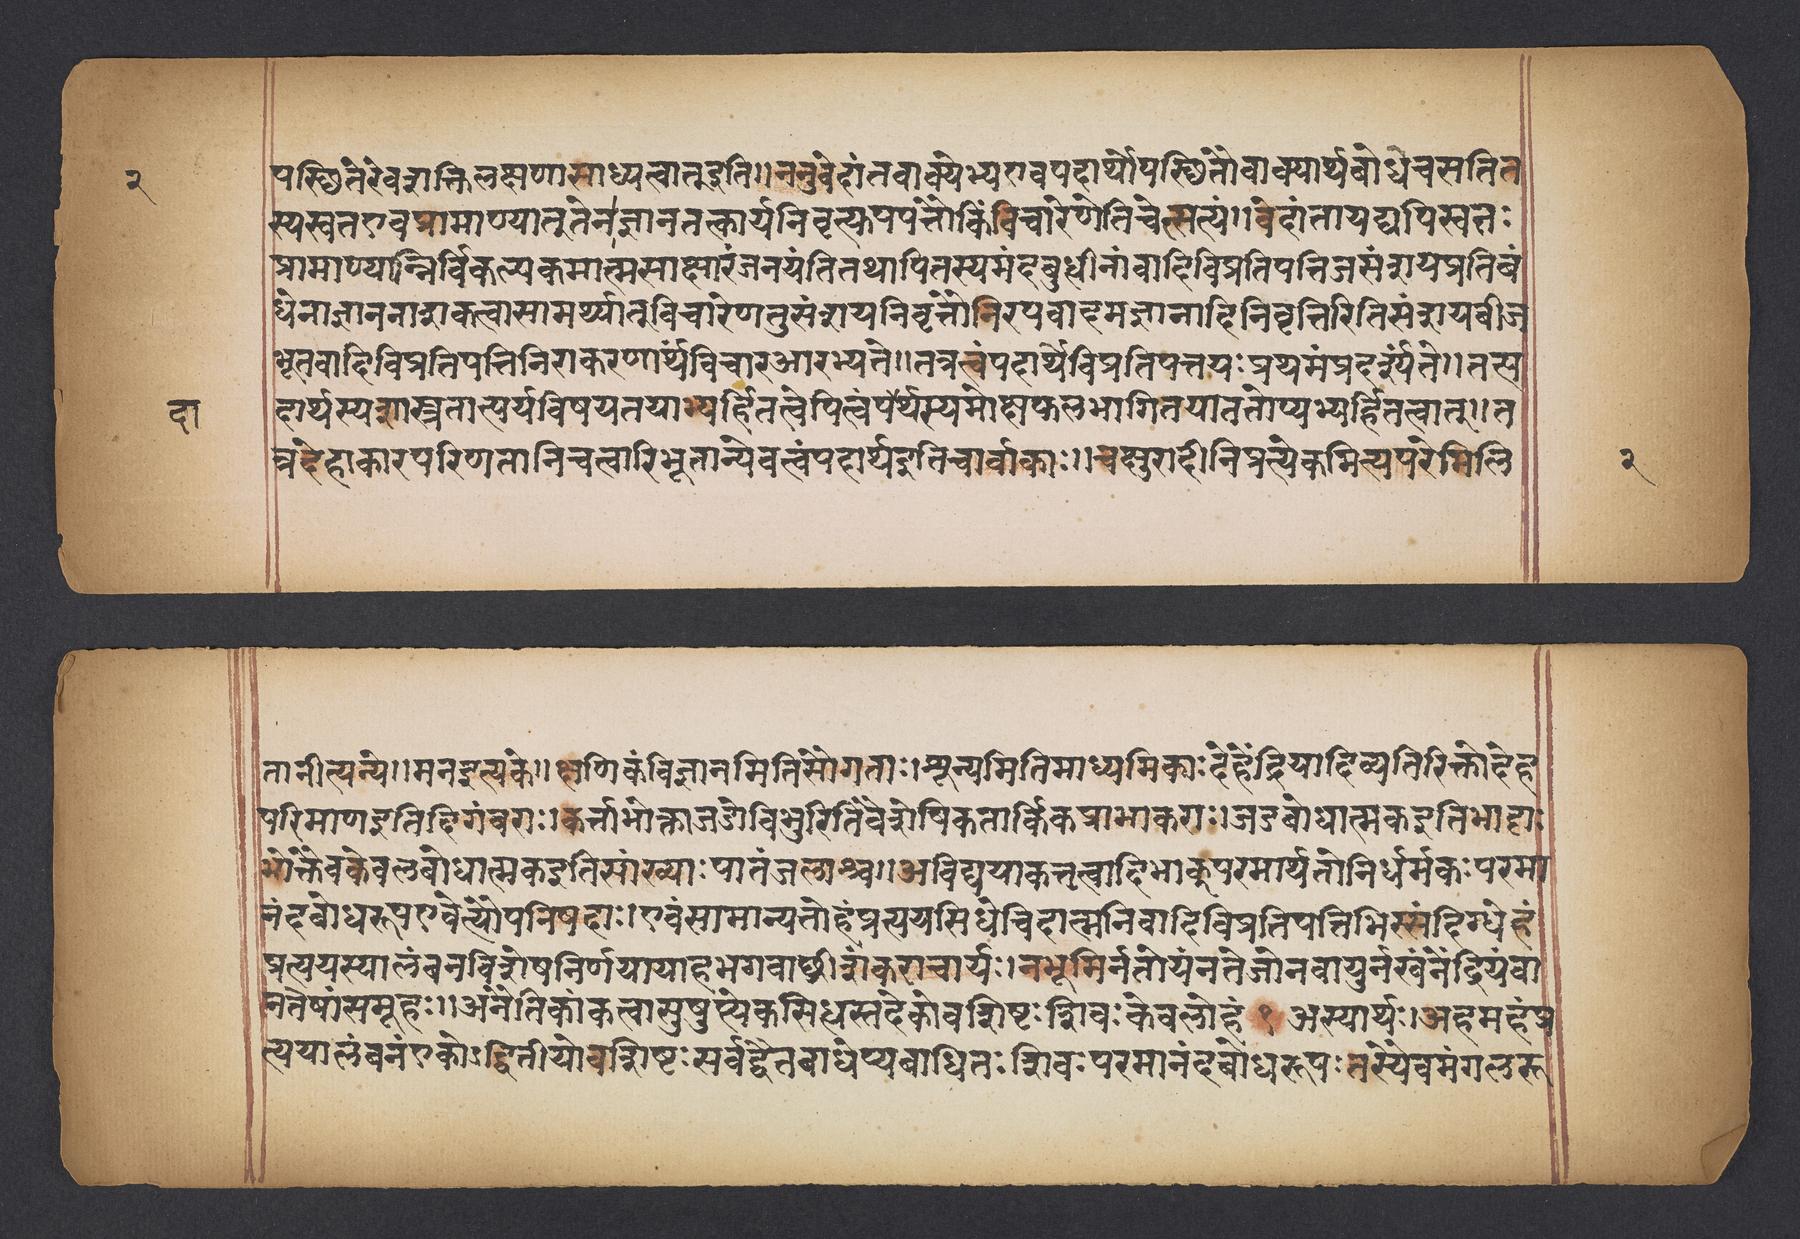 २
पस्छितेरेवशक्तिलक्षणासाध्यत्वात्इति॥ननुवेदांतवाक्येभ्यएवपदार्थोपस्छितौवाक्यार्थबोधेचसतित
स्यस्वतएवप्रामाण्यात्तेनाज्ञानतत्कार्यनिवृत्त्युपपत्तौकिंविचारेणेतिचेत्सत्यं॥वेदांतायद्यपिस्वतः
प्रामाण्यान्निर्विकल्पकमात्मसाक्षारंजनयंतितथापितस्यमंदबुधीनांवादिविप्रतिपत्तिजसंशयप्रतिबं
धेनाज्ञाननाशकत्वासामर्थ्यात्विचारेणतुसंशयनिवृत्तौनिरपवादमज्ञानादिनिवृत्तिरितिसंशयबीज
भूतवादिविप्रतिपत्तिनिराकरणार्थंविचारआरभ्यते॥तत्रत्वंपदार्थेविप्रतिपत्तयःप्रथमंप्रदर्श्यंते॥तत्प
दार्थस्यशास्त्रतात्पर्यविषयतयाभ्यर्हितत्वेपित्वंपर्थस्यमोक्षफलभागितयाततोप्यभ्यर्हितत्वात्॥त
दा
त्रदेहाकारपरिणतानिचत्वारिभूतान्येवत्वंपदार्थइतिचार्वाकाः॥चक्षुरादीनिप्रत्येकमित्यपरेमिलि
२
तानीत्यन्ये॥मनइत्येके॥क्षणिकंविज्ञानमितिसौगताः।शून्यमितिमाध्यमिकाःदेहेंद्रियादिव्यतिरिक्तोदेह
परिमाणइतिदिगंबराः।कर्त्ताभोक्ताजडोविभुरितिवैशेषिकतार्किकप्राभाकराः।जडबोधात्मकइतिभाट्टाः
भोक्तैवकेवलबोधात्मकइतिसांख्याःपातंजलाश्च॥अविद्ययाकत्तृत्वादिभाक्परमार्थतोनिर्धर्मकःपरमा
नंदबोधरूपएवेत्यौपनिषदाः।एवंसामान्यतोहंप्रत्ययसिधेचिदात्मनिवादिविप्रतिपत्तिभिस्संदिग्धेहं
प्रत्ययस्यालंबनविशेषनिर्णयायाहभगवाछ्रीशंकराचार्यः।नभूमिर्नतोयंनतेजोनवायुर्नखंनेंद्रियंवा
नतेषांसमूहः॥अनैतिकांकत्वासुषुप्त्येकसिधस्तदेकोवशिष्टःशिवःकेवलोहं१अस्यार्थः।अहमहंप्र
त्ययालंबनंएकोऽद्वितीयोवशिष्टःसर्वद्वैतबाधेप्यबाधितःशिवःपरमानंदबोधरूपःतस्यैवमंगलरू